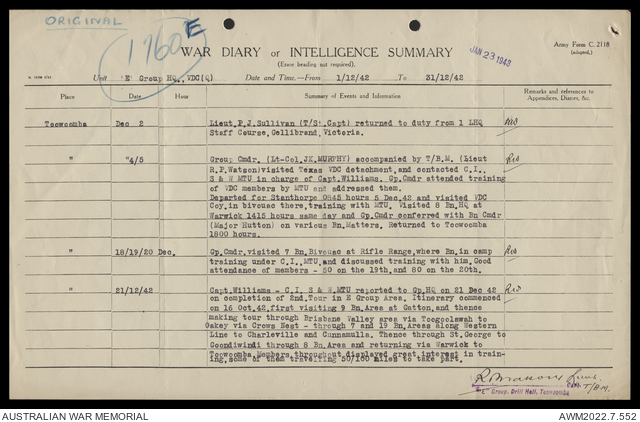 ORIGINAL
1760 E
WAR DIARY or INTELLIGENCE SUMMARY
Army Form C. 2118
(adapted.)
(Erase heading not required).
JAN 23 1943
Unit 'E' Group HQ., VDC(Q) Date and Time.—From 1/12/42 To 31/12/42
Place Date Hour Summary of Events and Information Remarks and references to
Appendices, Diaries, &c.
Toowoomba Dec 2 Lieut.P.J.Sullivan (T/St.Capt) returned to duty from 1 LHQ
Staff Course, Gellibrand, Victoria.
" "4/5 Group Cmdr. (Lt-Col.JK.MURPHY) accompanied by T/B.M. (Lieut
R.P.Watson) visited Texas VDC detachment, and contacted C.I.,
S & W MTU in charge of Capt.Williams. Gp.Cmdr attended training
of VDC members by MTU and addressed them.
Departed for Stanthorpe 0845 hours 5 Dec.42 and visited VDC
Coy.in bivouac there, training with MTU. Visited 8 Bn.HQ at
Warwick 1415 hours same day and Gp.Cmdr conferred with Bn Cmdr
(Major Hutton) on various Bn.Matters. Returned to Toowoomba
1800 hours.
" 18/19/20 Dec. Gp.Cmdr.visited 7 Bn.Bivouac at Rifle Range,where Bn.in camp
training under C.I.,MTU.and discussed training with him.Good
attendance of members - 50 on the 19th.and 80 on the 20th.
" 21/12/42 Capt.Williams - C.I, S & W.MTU reported to Gp.HQ on 21 Dec 42
on completion of 2nd.Tour in E Group Area. Itinerary commenced
on 16 Oct.42,first visiting 9 Bn.Area at Gatton, and thence
making tour through Brisbane Valley area via Toogoolawah to
Oakey via Crows Nest - through 7 and 19 Bn.Areas along Western
Line to Charleville and Cunnamulla. Thence through St.George to
Goondiwindi through 8 Bn.Area and returning via Warwick to
Toowoomba.Members throughout displayed great interest in train-
ing, some of them travelling 50/100 miles to take part.
Capt. T/B.M.
"E" Group, Drill Hall, Toowoomba
AUSTRALIAN WAR MEMORIAL AWM2022.7.552